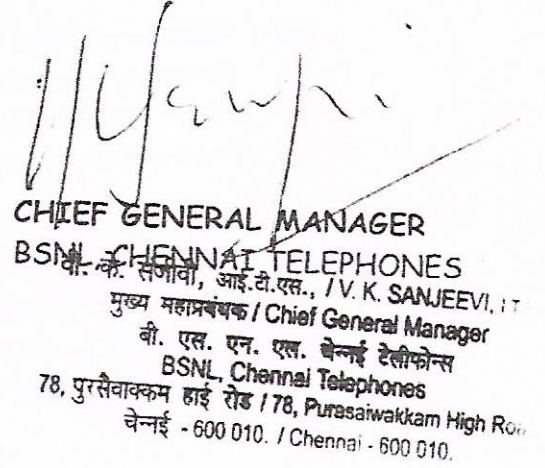 CHIEF GENERAL MANAGER
BSNL CHENNAI TELEPHONES
वी. के. संजीवी, आई.टी.एस., / V. K. SANJEEVI, I T
मुख्य महाप्रबंधक / Chief General Manager
बी. एस. एन. एल. चेन्नई टेलीफोन्स
BSNL, Chennai Telephones
78, पुरसैवाक्कम हाई रोड / 78, Purasaiwakkam High Roa
चेन्नई - 600 010. / Chennai - 600 010.